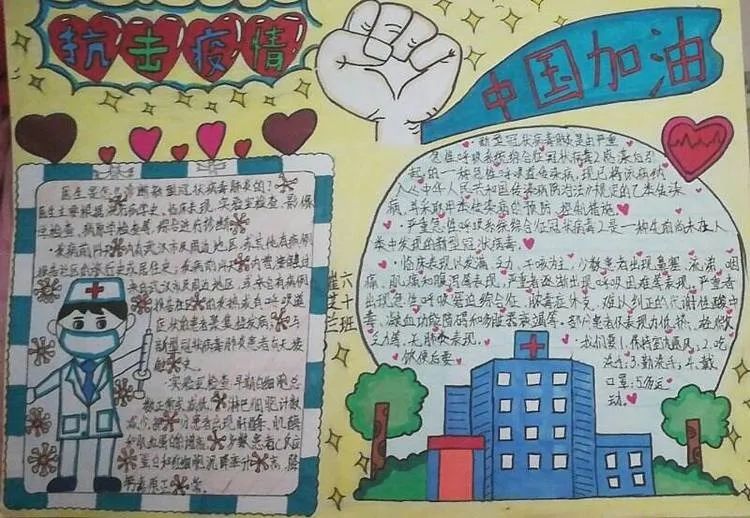 抗击疫情
中国加油
医生是怎么诊断新型冠状病毒肺炎的?
医生主要根据流行病学史、临床表现、实验室检查、影像
学检查、病原学检查等,综合进行诊断
·发病前14天内有武汉市及周边地区,或其他有病例
报告社区的旅行史或居住史;发病前14天内曾接触过
来自武汉市及周边地区,或来自有病例
报告社区的发热或有呼吸道
症状的患者;聚集性发病;与
新型冠状病毒肺炎患者有无接
触史。
·实验室检查:早期白细胞总
数正常或减低,淋巴细胞计数
减少,部分患者出现肝酶、肌酶
和肌血蛋白增高。多数患者C反应
蛋白和红细胞沉降率升高,降
钙素原正常。
六年十班
新型冠状病毒肺炎是由严重
急性呼吸系统综合征冠状病毒2感染后引
起的一种急性呼吸道传染病,现已将该病纳
入《中华人民共和国传染病防治法》规定的乙类传染
病,并采取甲类传染病的预防、控制措施。
·严重急性呼吸系统综合征冠状病毒2是一种先前尚未在人
类中发现的新型冠状病毒。
·临床表现以发热、乏力、干咳为主,少数患者出现鼻塞、流涕、咽
痛、肌痛和腹泻等表现,严重者逐渐出现呼吸困难等表现,严重者
出现急性呼吸窘迫综合征、脓毒症休克、难以纠正的代谢性酸中
毒、凝血功能障碍和多脏器衰竭等。部分患者仅表现为低热、轻微
乏力等,无肺炎表现。
·我们要1.保持室内通风;2.吃
饭便后要
洗手;3.勤洗手;4.戴
口罩;5.多运
动。